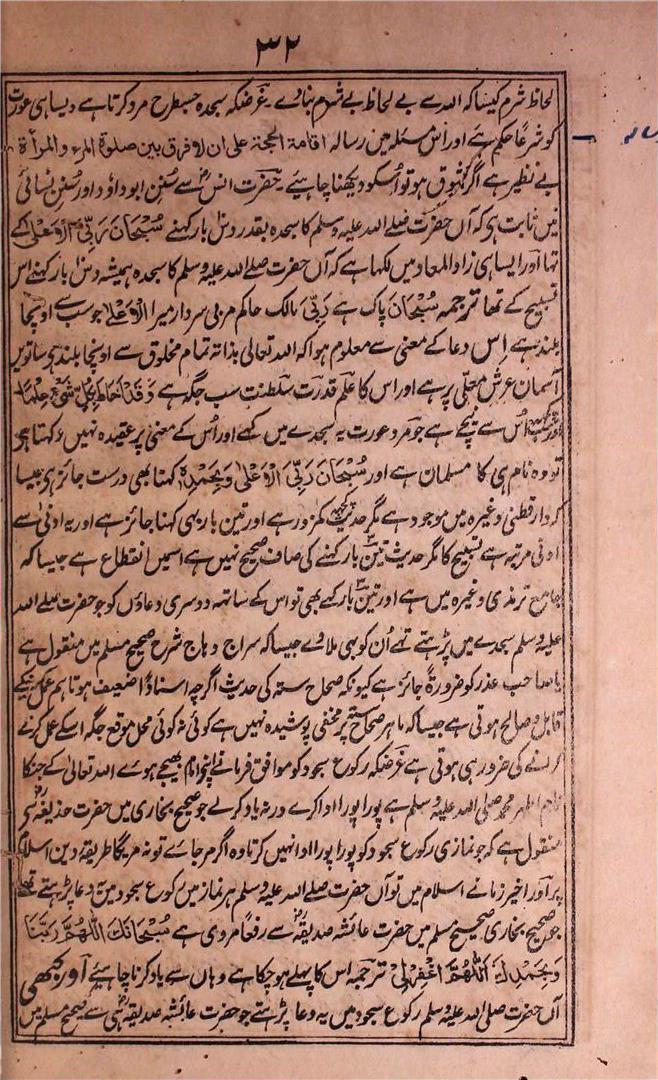 ۳۲
لحاظ شرم کیسا کہ اللہ سے بے لحاظ بے شرم بناوے ۔ غرضکہ سجدہ جسطرح مرد کرتا ہے ویسا ہی عورت
کو شرعاً حکم ہے اور اس مسئلہ میں رسالہ اقامۃ الحجۃ علی ان لا فرق بین صلوۃ المرء والمرأۃ
بے نظیر ہے اگر شوق ہو تو اُسکو دیکھنا چاہیے ۔ حضرت انس سے سُنن ابو داؤد اور سُنن نسائی
میں ثابت ہی کہ آں حضرت صلے اللہ علیہ وسلم کا سجدہ بقدر دس بار کہنے سُبْحَانَ رَبِّیَ الْاَعْلٰی کے
تھا اور ایسا ہی زاد المعاد میں لکھا ہے کہ آں حضرت صلے اللہ علیہ وسلم کا سجدہ ہمیشہ دس بار کہنے اس
تسبیح کے تھا ترجمہ سُبْحَانَ پاک ہے رَبِّیَ مالک حاکم مربی سردار میرا الْاَعْلٰی جو سب سے اونچا
بلند ہے اِس دعا کے معنی سے معلوم ہوا کہ اللہ تعالی بذاتہ تمام مخلوق سے اونچا بلند ہی ساتویں
آسمان عرش معلّی پر ہے اور اس کا علم قدرت سلطنت سب جگہ ہے وَقَدْ اَحَاطَ بِکُلِّ شَیْءٍ عِلْمًا
اور سب اُس سے نیچے ہے جو مرد عورت یہ سجدے میں کہے اور اُس کے معنی پر عقیدہ نہیں رکھتا ہی
تو وہ نام ہی کا مسلمان ہے اور سُبْحَانَ رَبِّیَ الْاَعْلٰی وَبِحَمْدِہٖ کہنا بھی درست جائز ہی جیسا
کہ دارقطنی وغیرہ میں موجود ہے مگر حدیث کمزور ہے اور تین بار بہی کہنا جائز ہے اور یہ ادنی سے
ادنی مرتبہ ہے تسبیح کا مگر حدیث تین بار کہنے کی صاف صحیح نہیں ہے اسمیں انقطاع ہے جیسا کہ
جامع ترمذی وغیرہ میں ہے اور تین بار کہے بھی تو اس کے ساتہہ دوسری دعاؤں کو جو حضرت صلے اللہ
علیہ وسلم سجدے میں پڑہتے تہے اُن کو بہی ملاوے جیسا کہ سراج وہاج شرح صحیح مسلم میں منقول ہے
یا صاحب عذر کو ضرورۃً جائز ہے کیونکہ صحاح ستہ کی حدیث اگرچہ اسناداً ضعیف ہو تاہم عمل کے
قابل و صالح ہوتی ہے جیسا کہ ماہر صحاح ستہ پر مخفی پوشیدہ نہیں ہے کوئی نہ کوئی محل موقع جگہ اسکے عمل کرنے
کرانے کی ضرور ہی ہوتی ہے غرضکہ رکوع سجود کو موافق فرمانے اپنے امام بھیجے ہوے اللہ تعالیٰ کے جنکا
نام اطہر محمد صلی اللہ علیہ وسلم ہے پورا پورا ادا کرے ورنہ یاد کرلے جو صحیح بخاری میں حضرت حذیفہ سے
منقول ہے کہ جو نمازی رکوع سجود کو پورا پورا ادا نہیں کرتا وہ اگر مرجاے تو نہ مریگا طریقۂ دین اسلام
پر اور اخیر زمانے اسلام میں تو آں حضرت صلے اللہ علیہ وسلم ہر نماز میں رکوع سجود میں یہ دعا پڑہتے تھے
جو صحیح بخاری صحیح مسلم میں حضرت عائشہ صدیقہ سے رفعاً مروی ہے سُبْحَانَکَ اللّٰھُمَّ رَبَّنَا
وَبِحَمْدِکَ اَللّٰھُمَّ اغْفِرْلِیْ ترجمہ اس کا پہلے ہو چکا ہے وہاں سے یاد کرنا چاہئے اور کبھی
آں حضرت صلی اللہ علیہ وسلم رکوع سجود میں یہ دعا پڑہتے جو حضرت عائشہ صدیقہ ہی سے صحیح مسلم میں